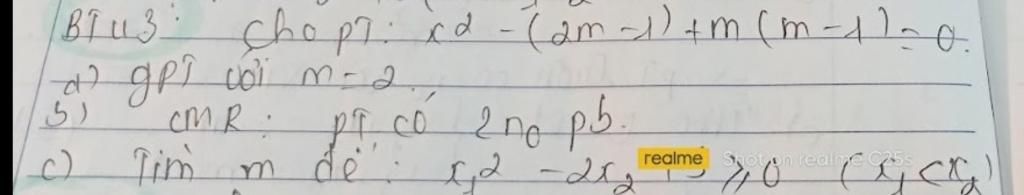 BTu3: Cho pT: x² - (2m-1) + m(m-1) = 0.
a) gpT với m = 2.
b) CMR: pT có 2 no pb.
c) Tìm m để: x₁² - 2x₂ ≥ 0 (x₁ < x₂)
realme Shot on realme C25s